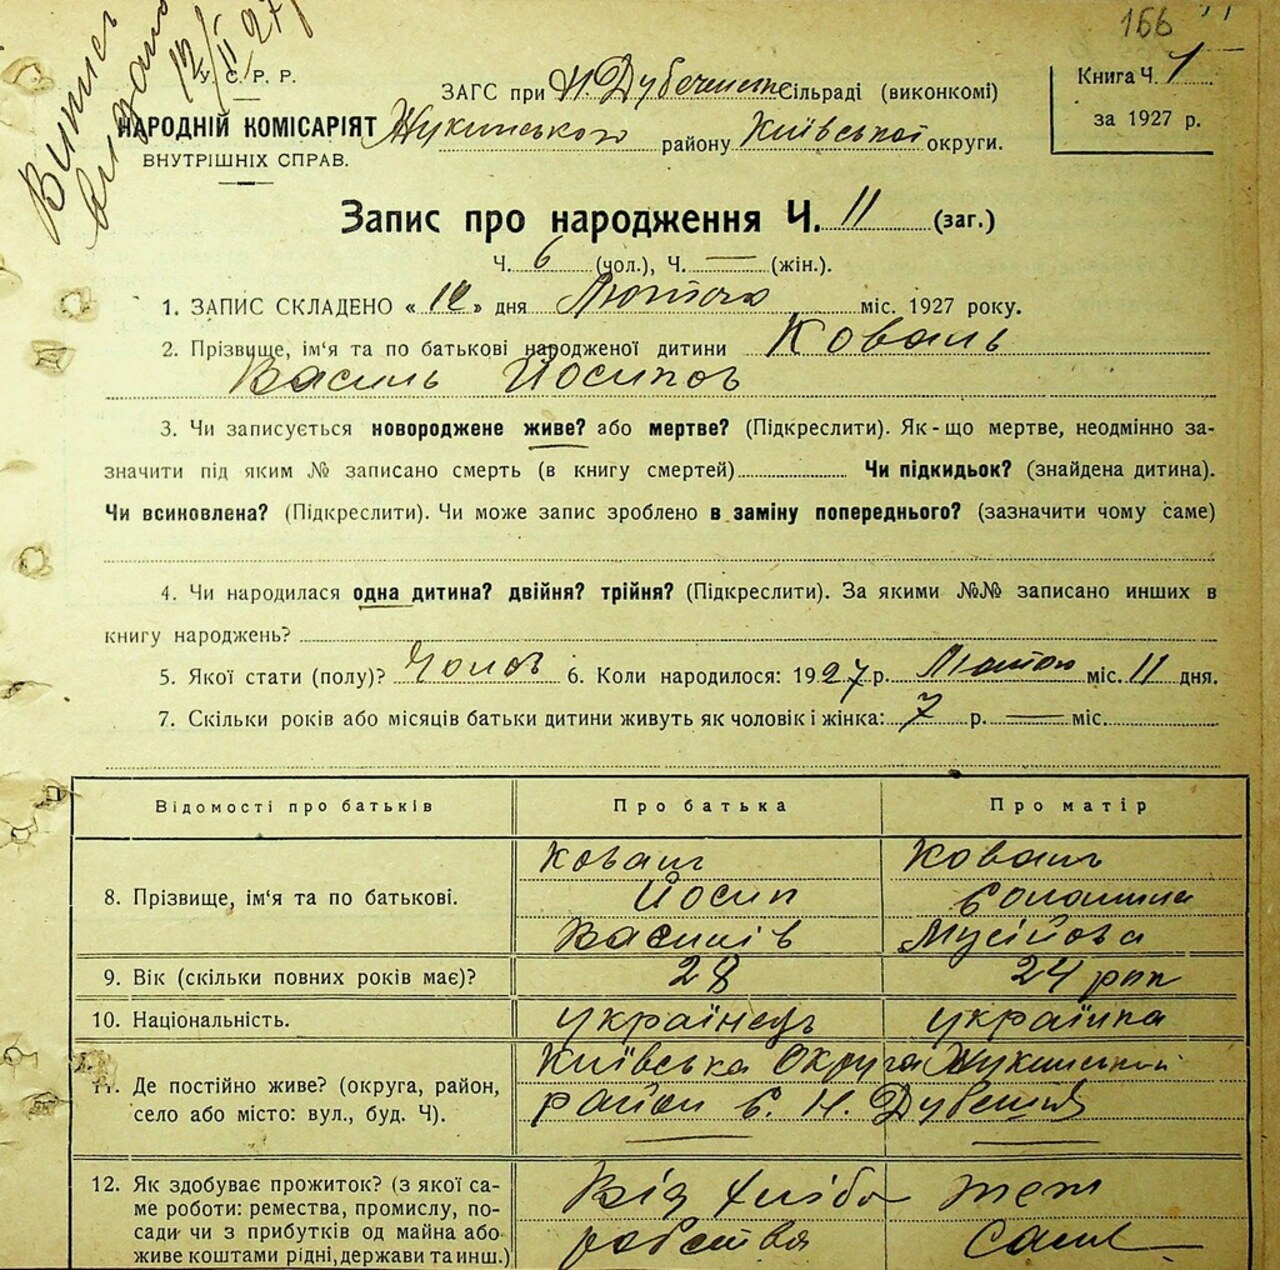 166
Витяг
видано
12/II 27
У. С. Р. Р.
НАРОДНІЙ КОМІСАРІЯТ
ВНУТРІШНІХ СПРАВ.
ЗАГС при Н. Дубечанс. сільраді (виконкомі)
Жукинського району Київської округи.
Книга Ч. 1
за 1927 р.
Запис про народження Ч. 11 (заг.)
Ч. 6 (чол.), Ч. — (жін.).
1. ЗАПИС СКЛАДЕНО «12» дня Лютого міс. 1927 року.
2. Прізвище, ім'я та по батькові народженої дитини Коваль
Василь Йосипов
3. Чи записується новороджене живе? або мертве? (Підкреслити). Як-що мертве, неодмінно за-
значити під яким № записано смерть (в книгу смертей) Чи підкидьок? (знайдена дитина).
Чи всиновлена? (Підкреслити). Чи може запис зроблено в заміну попереднього? (зазначити чому саме)
4. Чи народилася одна дитина? двійня? трійня? (Підкреслити). За якими №№ записано инших в
книгу народжень?
5. Якої стати (полу)? Чолов 6. Коли народилося: 1927 р. Лютого міс. 11 дня.
7. Скільки років або місяців батьки дитини живуть як чоловік і жінка: 7 р. — міс.
Відомості про батьків Про батька Про матір
8. Прізвище, ім'я та по батькові.
Коваль
Йосип
Василів
Коваль
Мусійова
9. Вік (скільки повних років має)? 28 24 рок
10. Національність. українець українка
11. Де постійно живе? (округа, район,
село або місто: вул., буд. Ч).
Київська Округа Жукинський
район с. Н. Дубечня
12. Як здобуває прожиток? (з якої са-
ме роботи: ремества, промислу, по-
сади чи з прибутків од майна або
живе коштами рідні, держави та инш.)
Від хлібо
робства
теж
саме